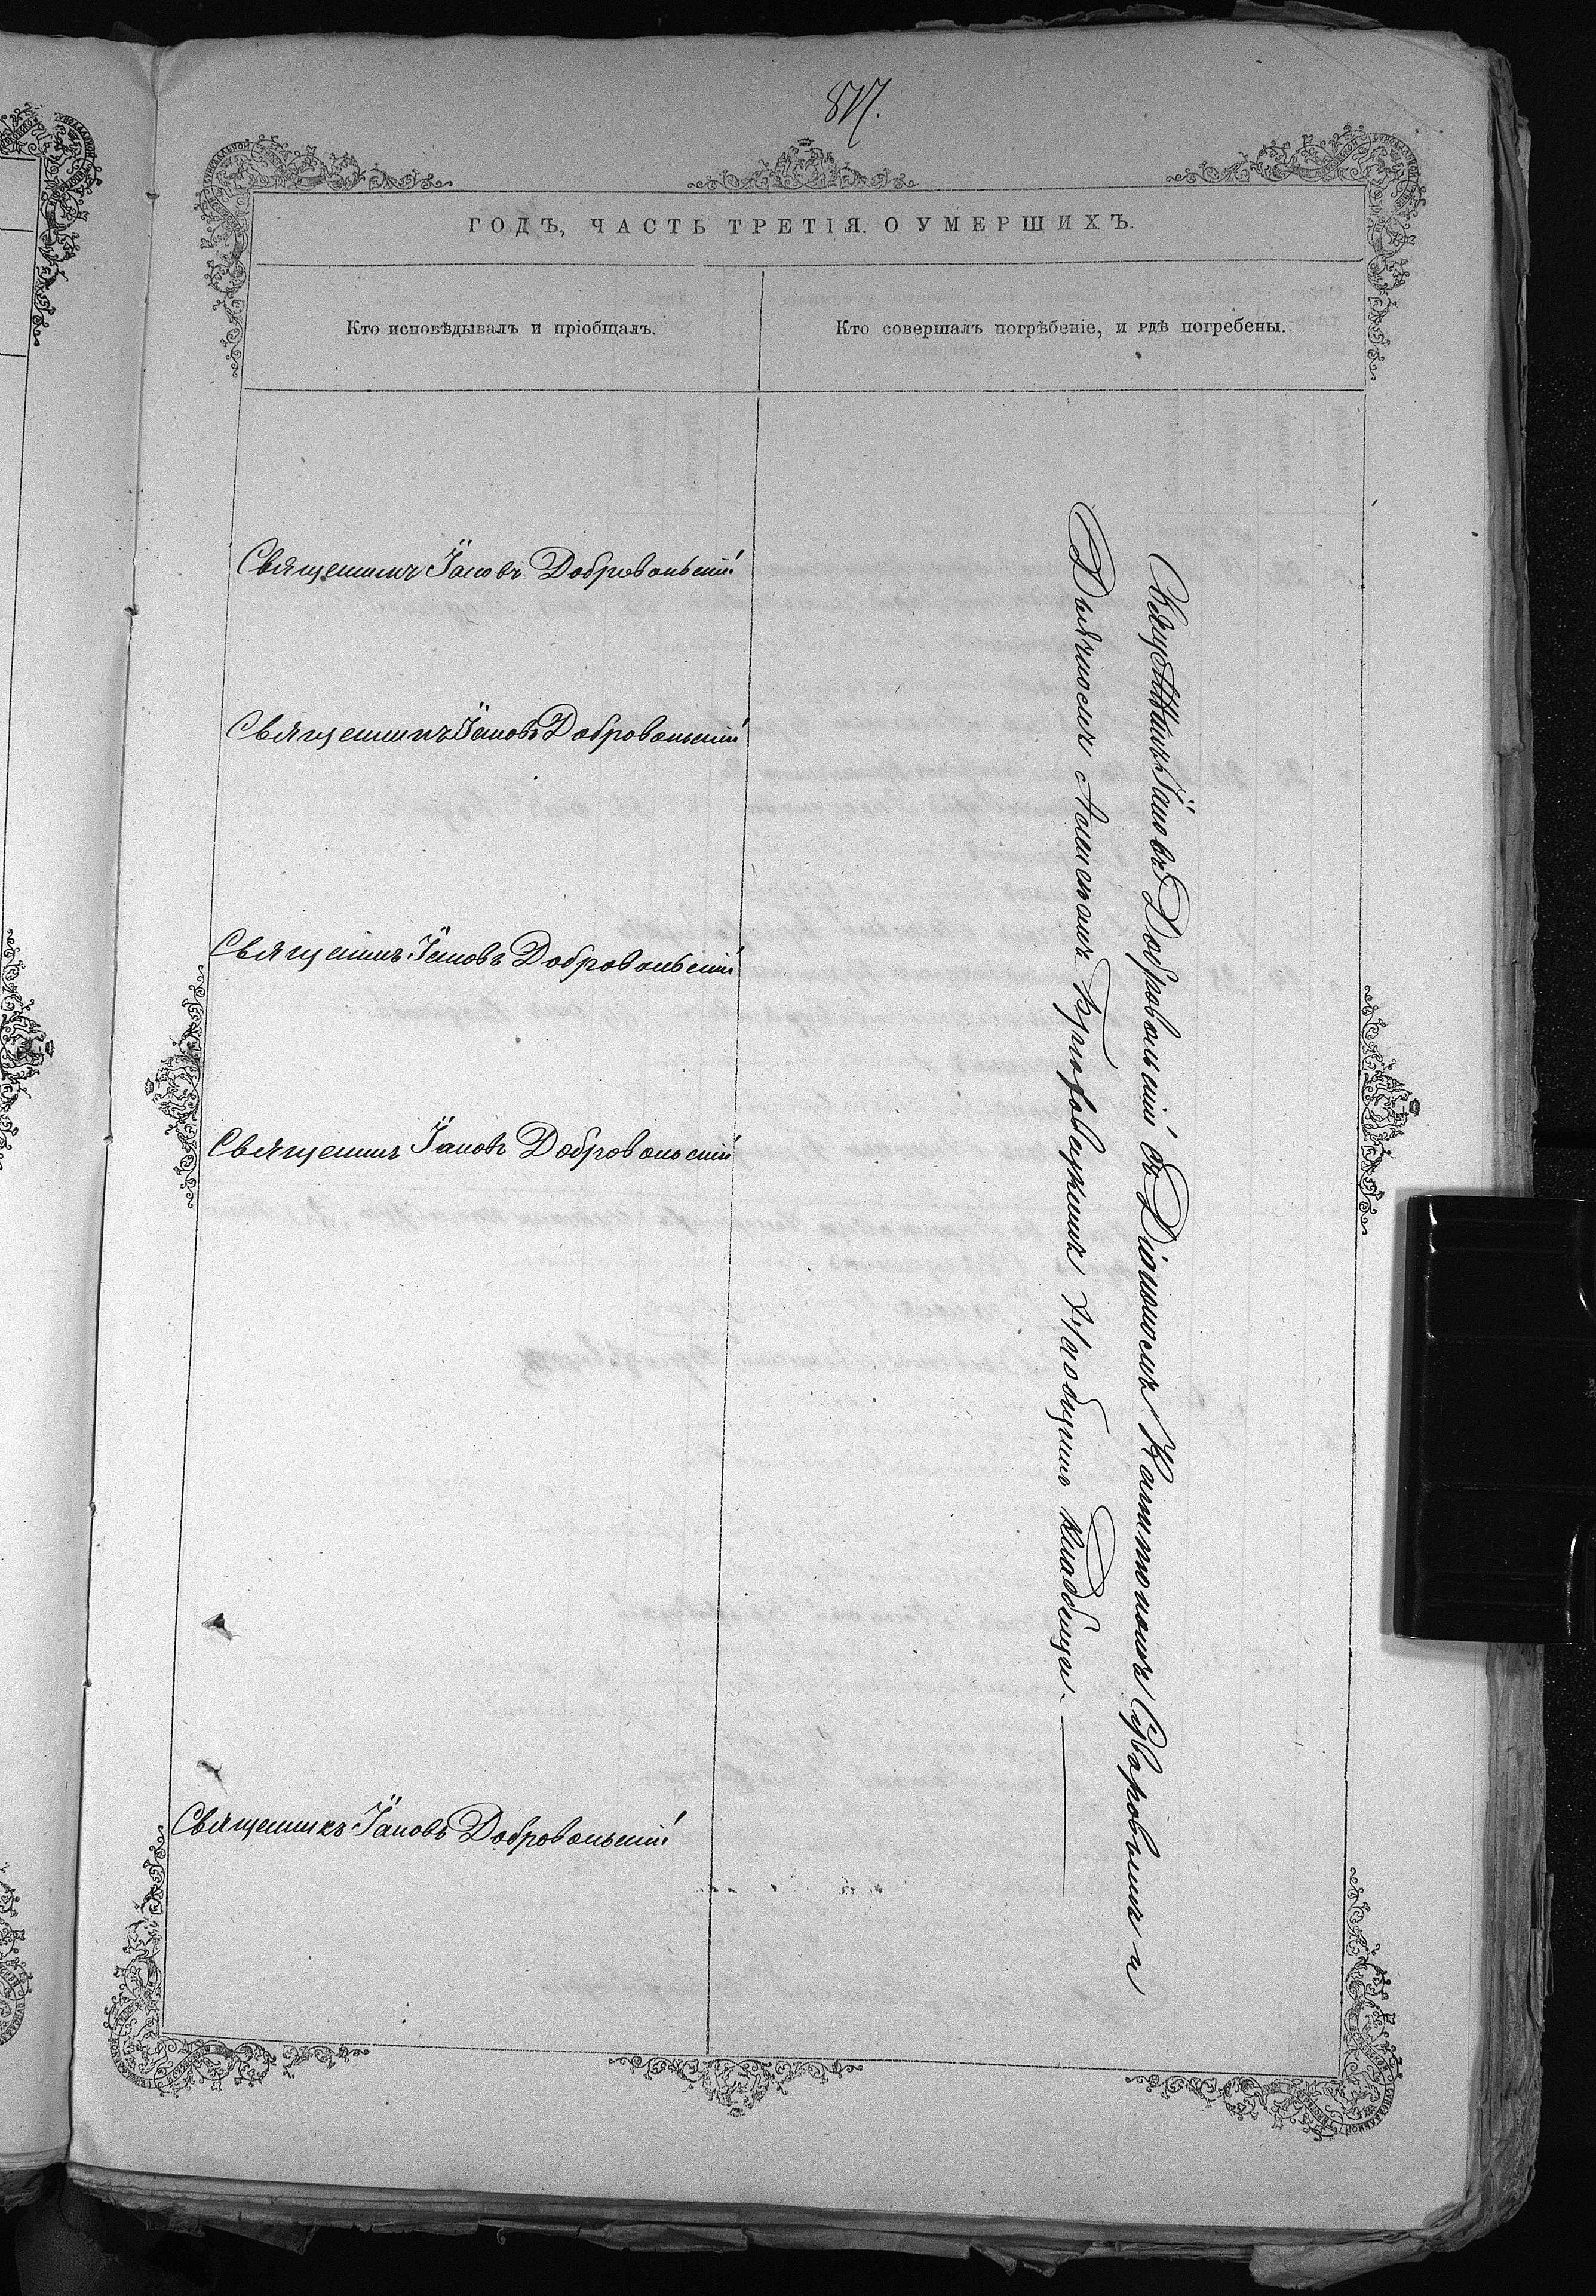 817.
ГОДЪ, ЧАСТЬ ТРЕТІЯ, О УМЕРШИХЪ.
Кто исповѣдывалъ и пріобщалъ.
Кто совершалъ погрѣбеніе, и гдѣ погребены.
Священникъ Іаковъ Добровольскій
Священникъ Іаковъ Добровольскій
Священникъ Іаковъ Добровольскій
Священникъ Іаковъ Добровольскій
Священникъ Іаковъ Добровольскій
Священникъ Іаковъ Добровольскій съ Діакономъ Капитономъ Суворовымъ и
Дьячкомъ Алексѣемъ Брюховецкимъ На общемъ кладбищѣ.